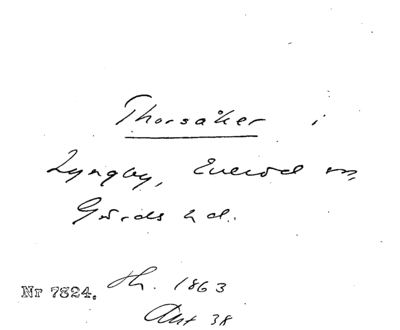 Thorsåker i
Lyngby, Everöd m,
Gärds hd.
Nr 7824. Th. 1863
Ant 38